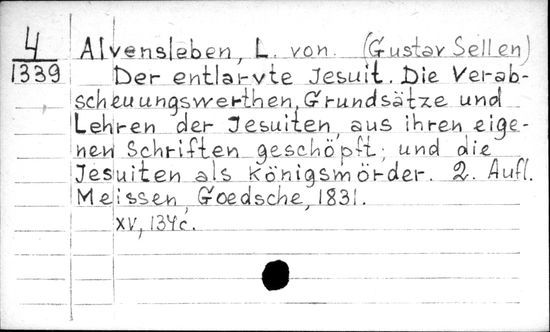 4
1339
Alvensleben, L. von. (Gustav Sellen)
Der entlarvte Jesuit. Die Verab-
scheuungswerthen, Grundsätze und
Lehren der Jesuiten, aus ihren eige-
nen Schriften geschöpft; und die
Jesuiten als Königsmörder. 2. Aufl.
Meissen, Goedsche, 1831.
XV, 134c.